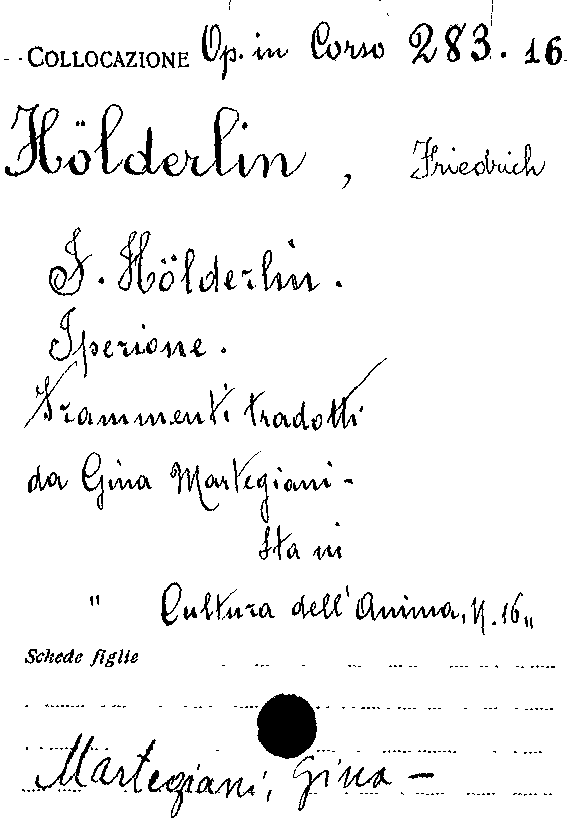 COLLOCAZIONE Op. in Corso 283. 16
Hölderlin, Friedrich
F. Hölderlin.
Iperione.
Frammenti tradotti
da Gina Martegiani -
Sta in
" Cultura dell'Anima, N. 16 „
Schede figlie
Martegiani, Gina -